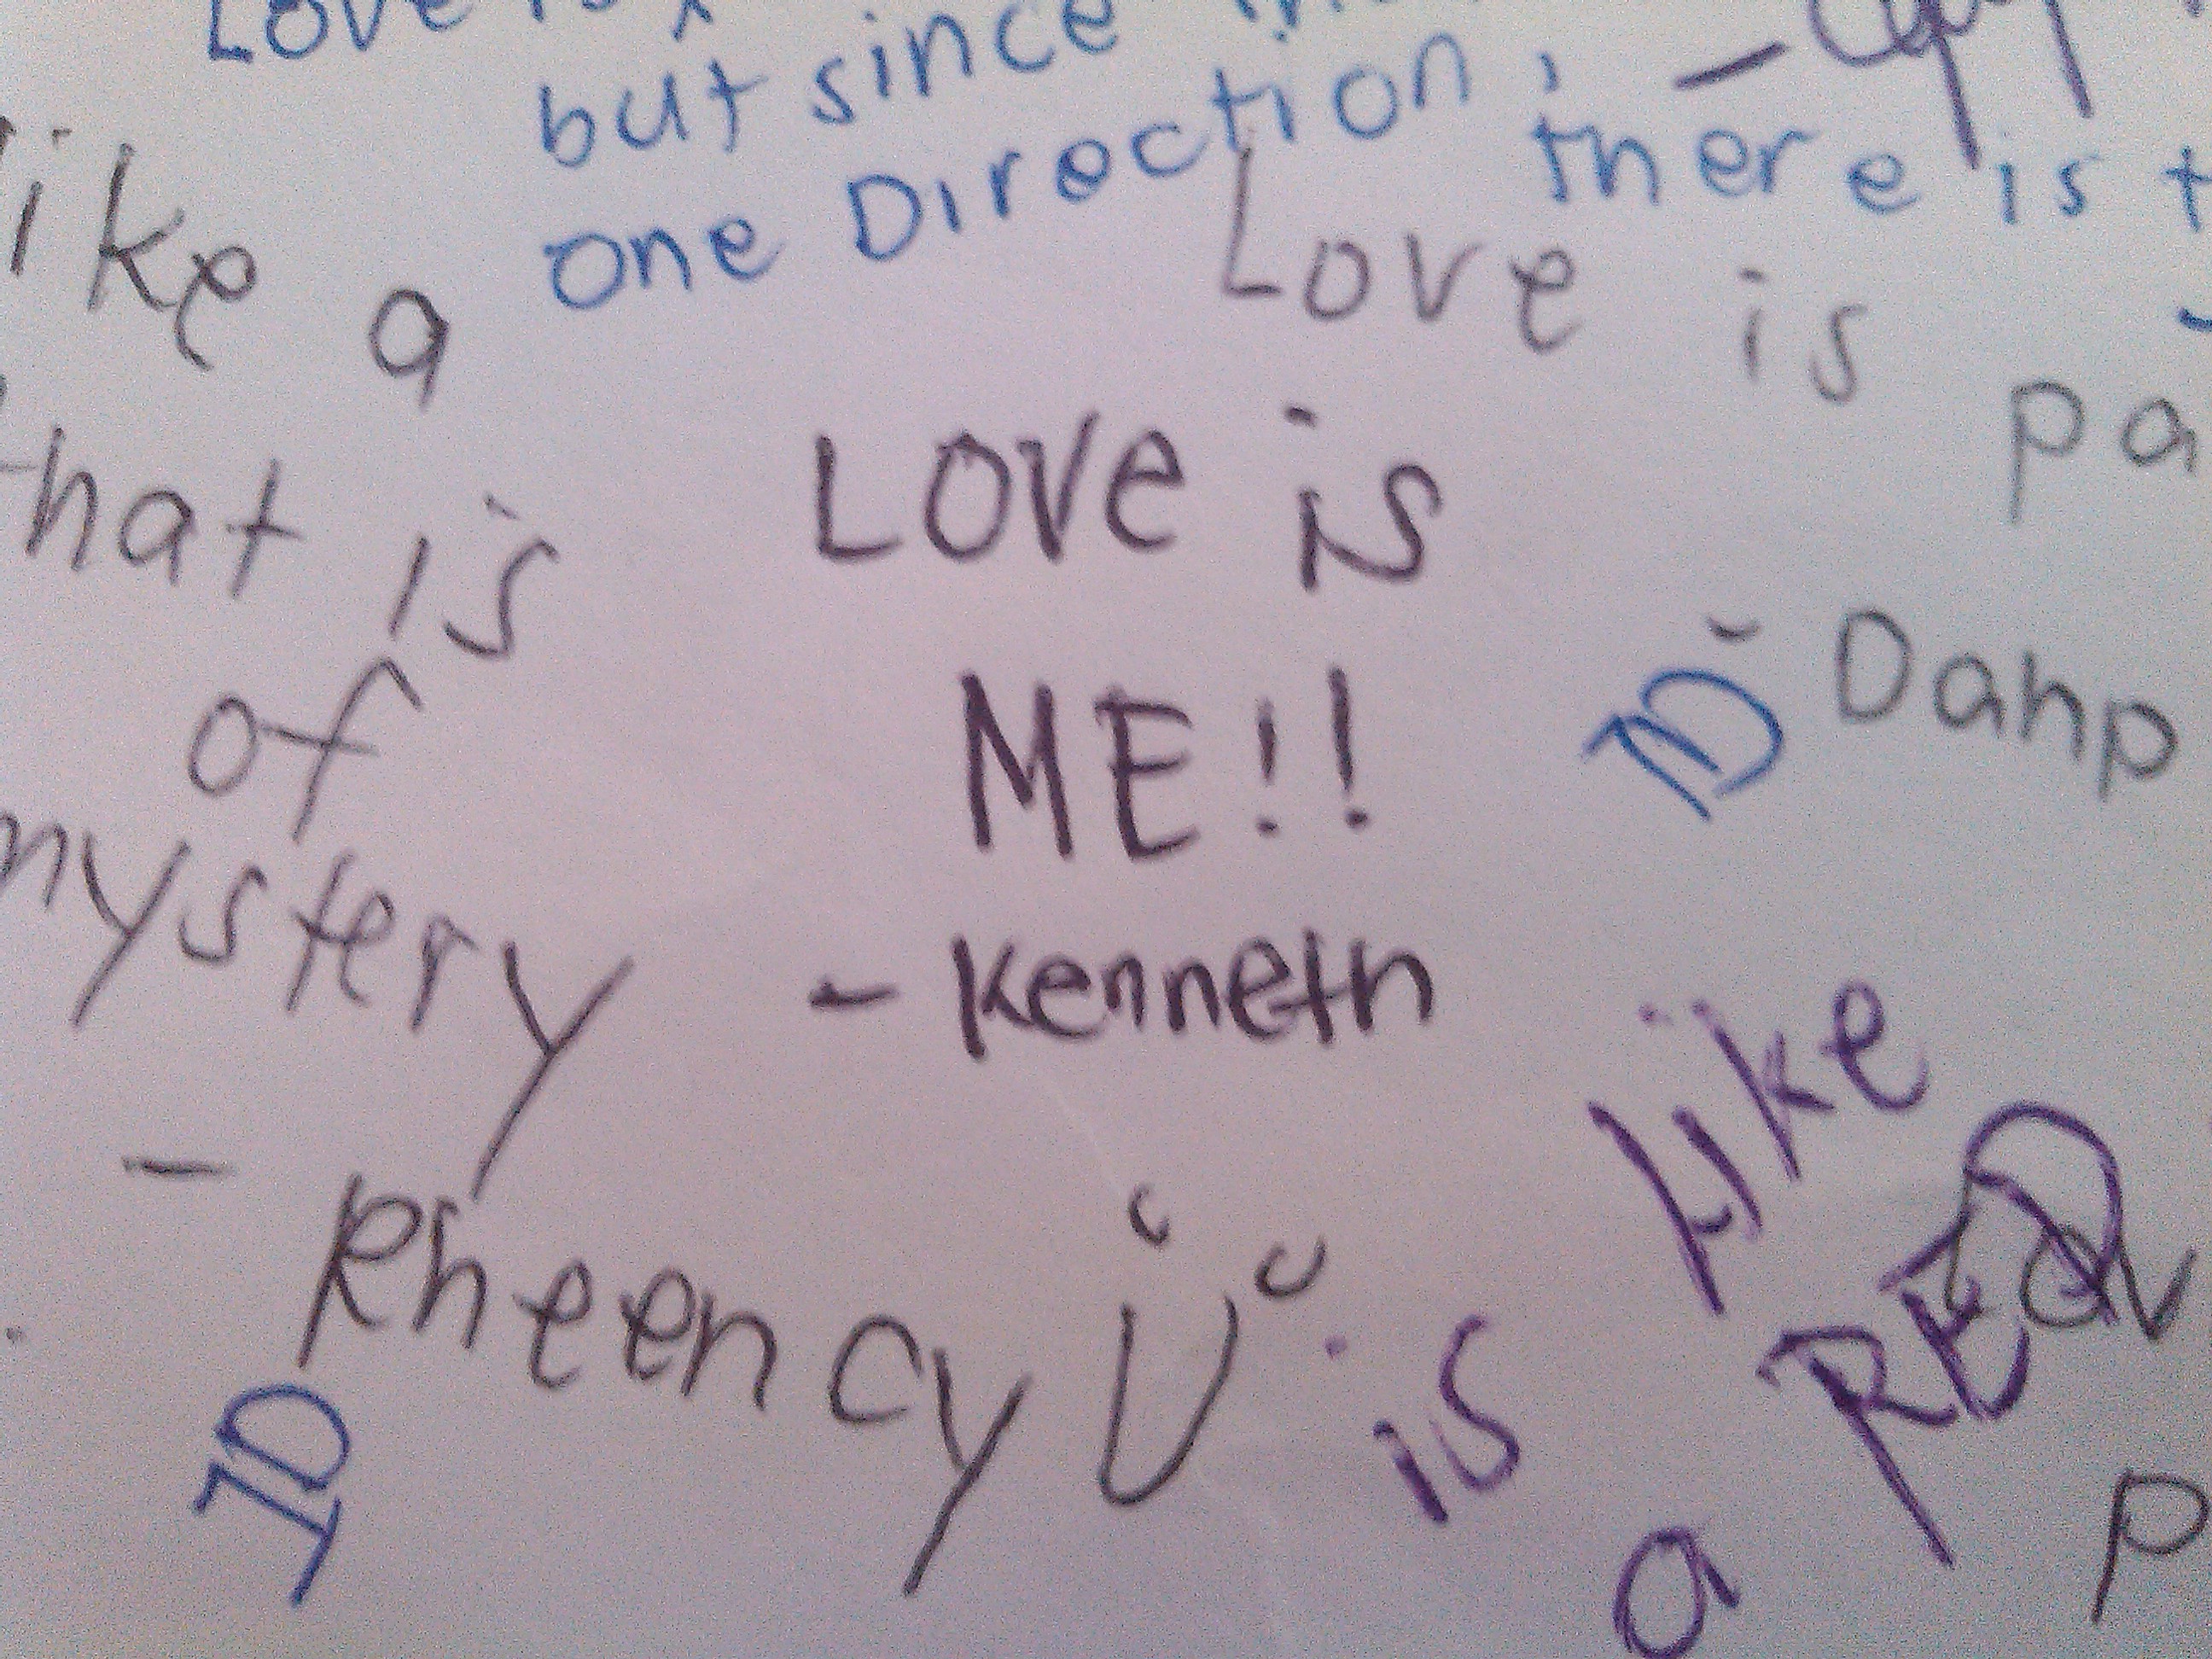 Love is
but since
one Direction, there is
like a
that is
of
mystery
- Rheency Ü
1D
Love is pa
Danp
1D
LOVE is
ME!!
- Kenneth
is like
a RED